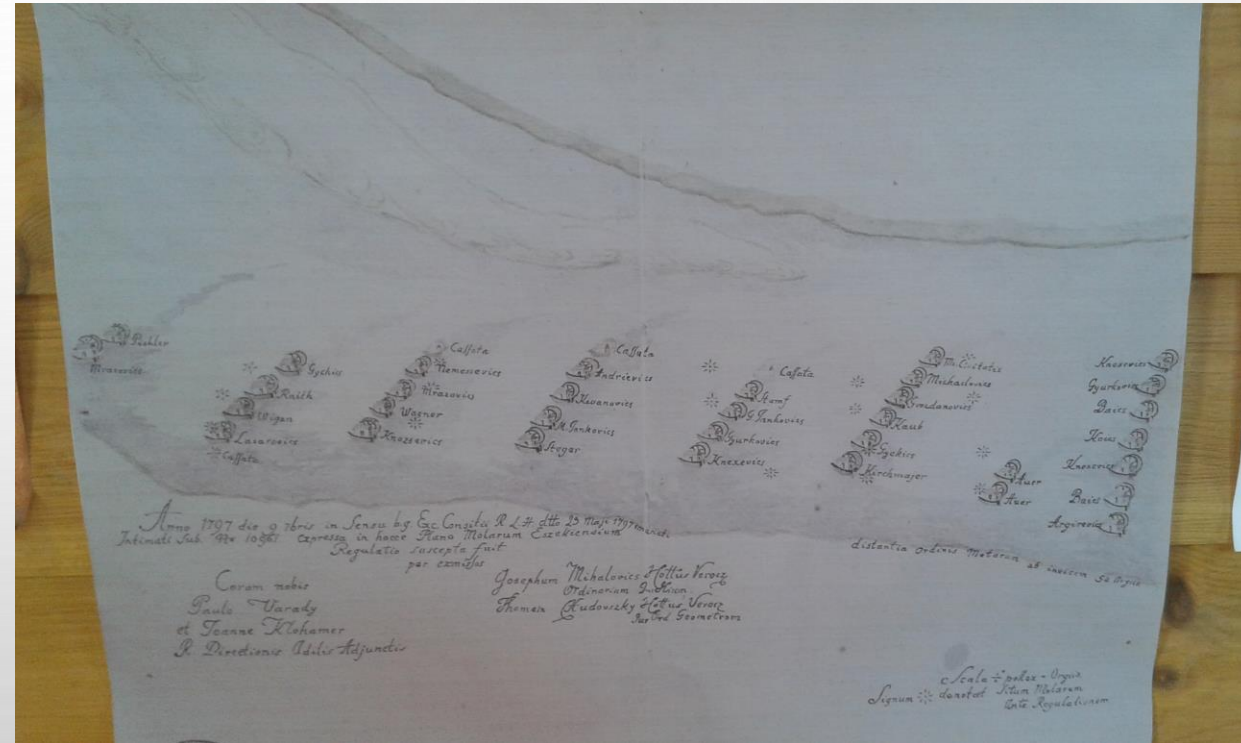 Pichler
Mrasovics
Gychics
Raith
Wigan
Lazarovics
Cassata
Cassata
Nemessevics
Mrasovics
Wagner
Knezsevics
Cassata
Andrievics
Kovanovics
M. Jankovics
Stegar
Cassata
Stumf
G. Jankovics
Gurkovics
Knezevics
M. Civitatis
Mishailovics
Smidanovics
Kaub
Gychics
Kirchmajer
Auer
Auer
Knesevics
Gyurkovics
Baics
Kous
Knesevics
Baics
Argirevics
Anno 1797 die 9 7bris in Sensu b.g. Exc. Consilii R. L. H. dtto 23 Maji 1797
Intimati Sub Nro expressa in hocce Plano Molarum Eszekiensium
Regulatio suscepta fuit
per exmissos
Coram nobis
Paulo Varady
et Joanne Klohamer
R. Directionis Adilis Adjunctis
Josephum Mihalovics Cottus Verocz
Ordinarium
Thomam Hudovszky Cottus Verocz
Jur Ord Geometram
distantia Ordinis Molarum ab invicem 50 Orgiis
Scala pollex = Orgiis
Signum denotat Situm Molarum
Ante Regulationem